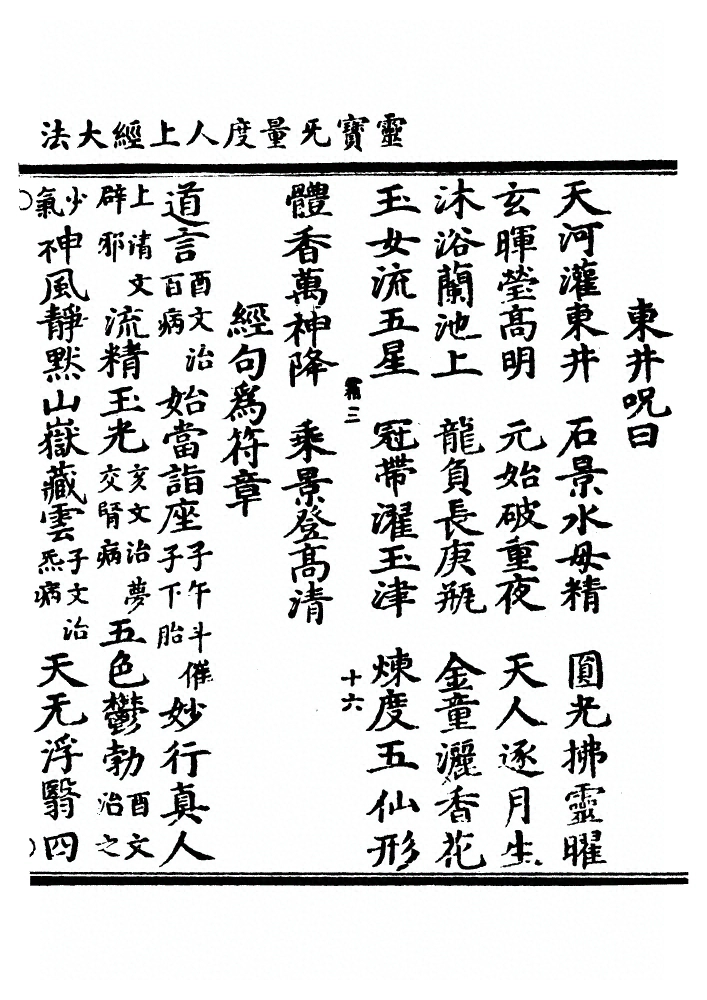 靈寶无量度人上經大法
東井呪曰
天河灌東井　石景水母精　圓光拂靈曜
玄暉瑩高明　元始破重夜　天人逐月生
沐浴蘭池上　龍負長庚瓶　金童灑香花
玉女流五星　冠帶濯玉津　煉度五仙形
霜三　十六
體香萬神降　乘景登高清
經句爲符章
道言酉文治百病始當詣座子午斗催子下胎妙行真人
上清文辟邪流精玉光亥文治夢交腎病五色鬱勃酉文治之
少氣神風靜默山嶽藏雲子文治炁病天无浮翳四